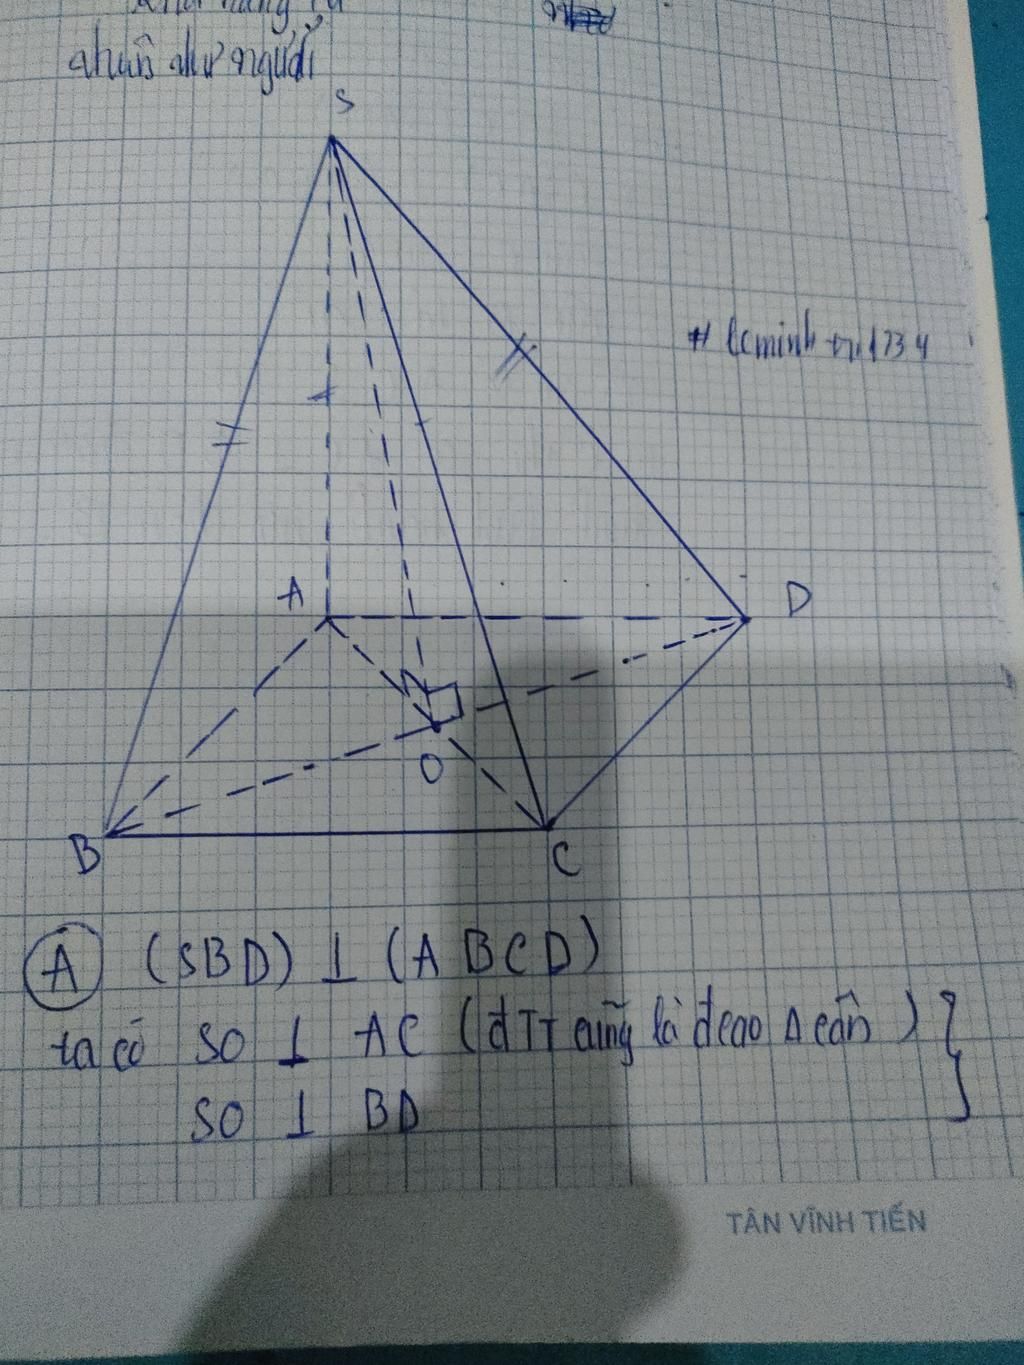 như người
S
# lcminh
A
D
O
B
C
A (SBD) ⊥ (ABCD)
ta có SO ⊥ AC (đTT cũng là đcao Δ cân) }
SO ⊥ BD
TÂN VĨNH TIẾN